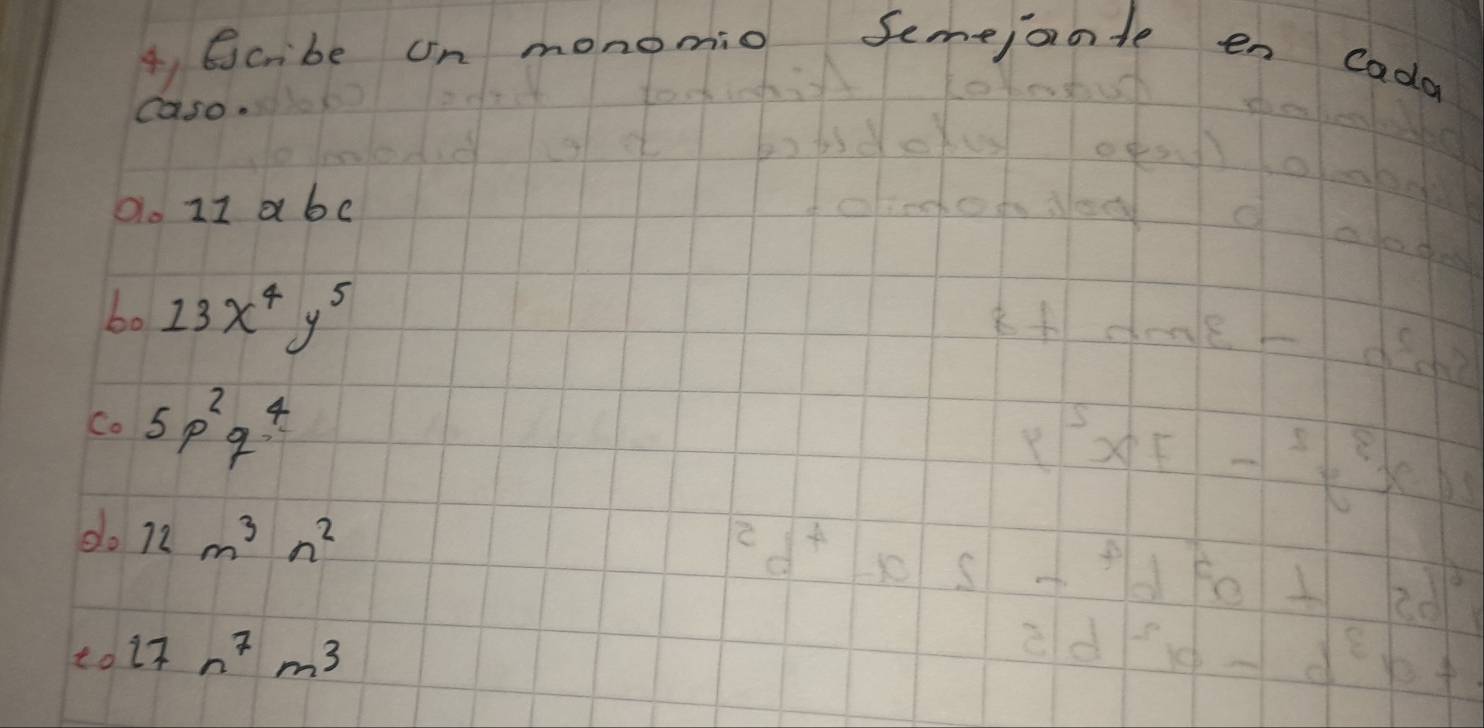 4) Escribe un monomio Semejante en cada
caso.
a. 11 abc
b. 13x⁴ y⁵
c. 5p²q⁴
d. 12 m³ n²
e. 17 n⁷ m³